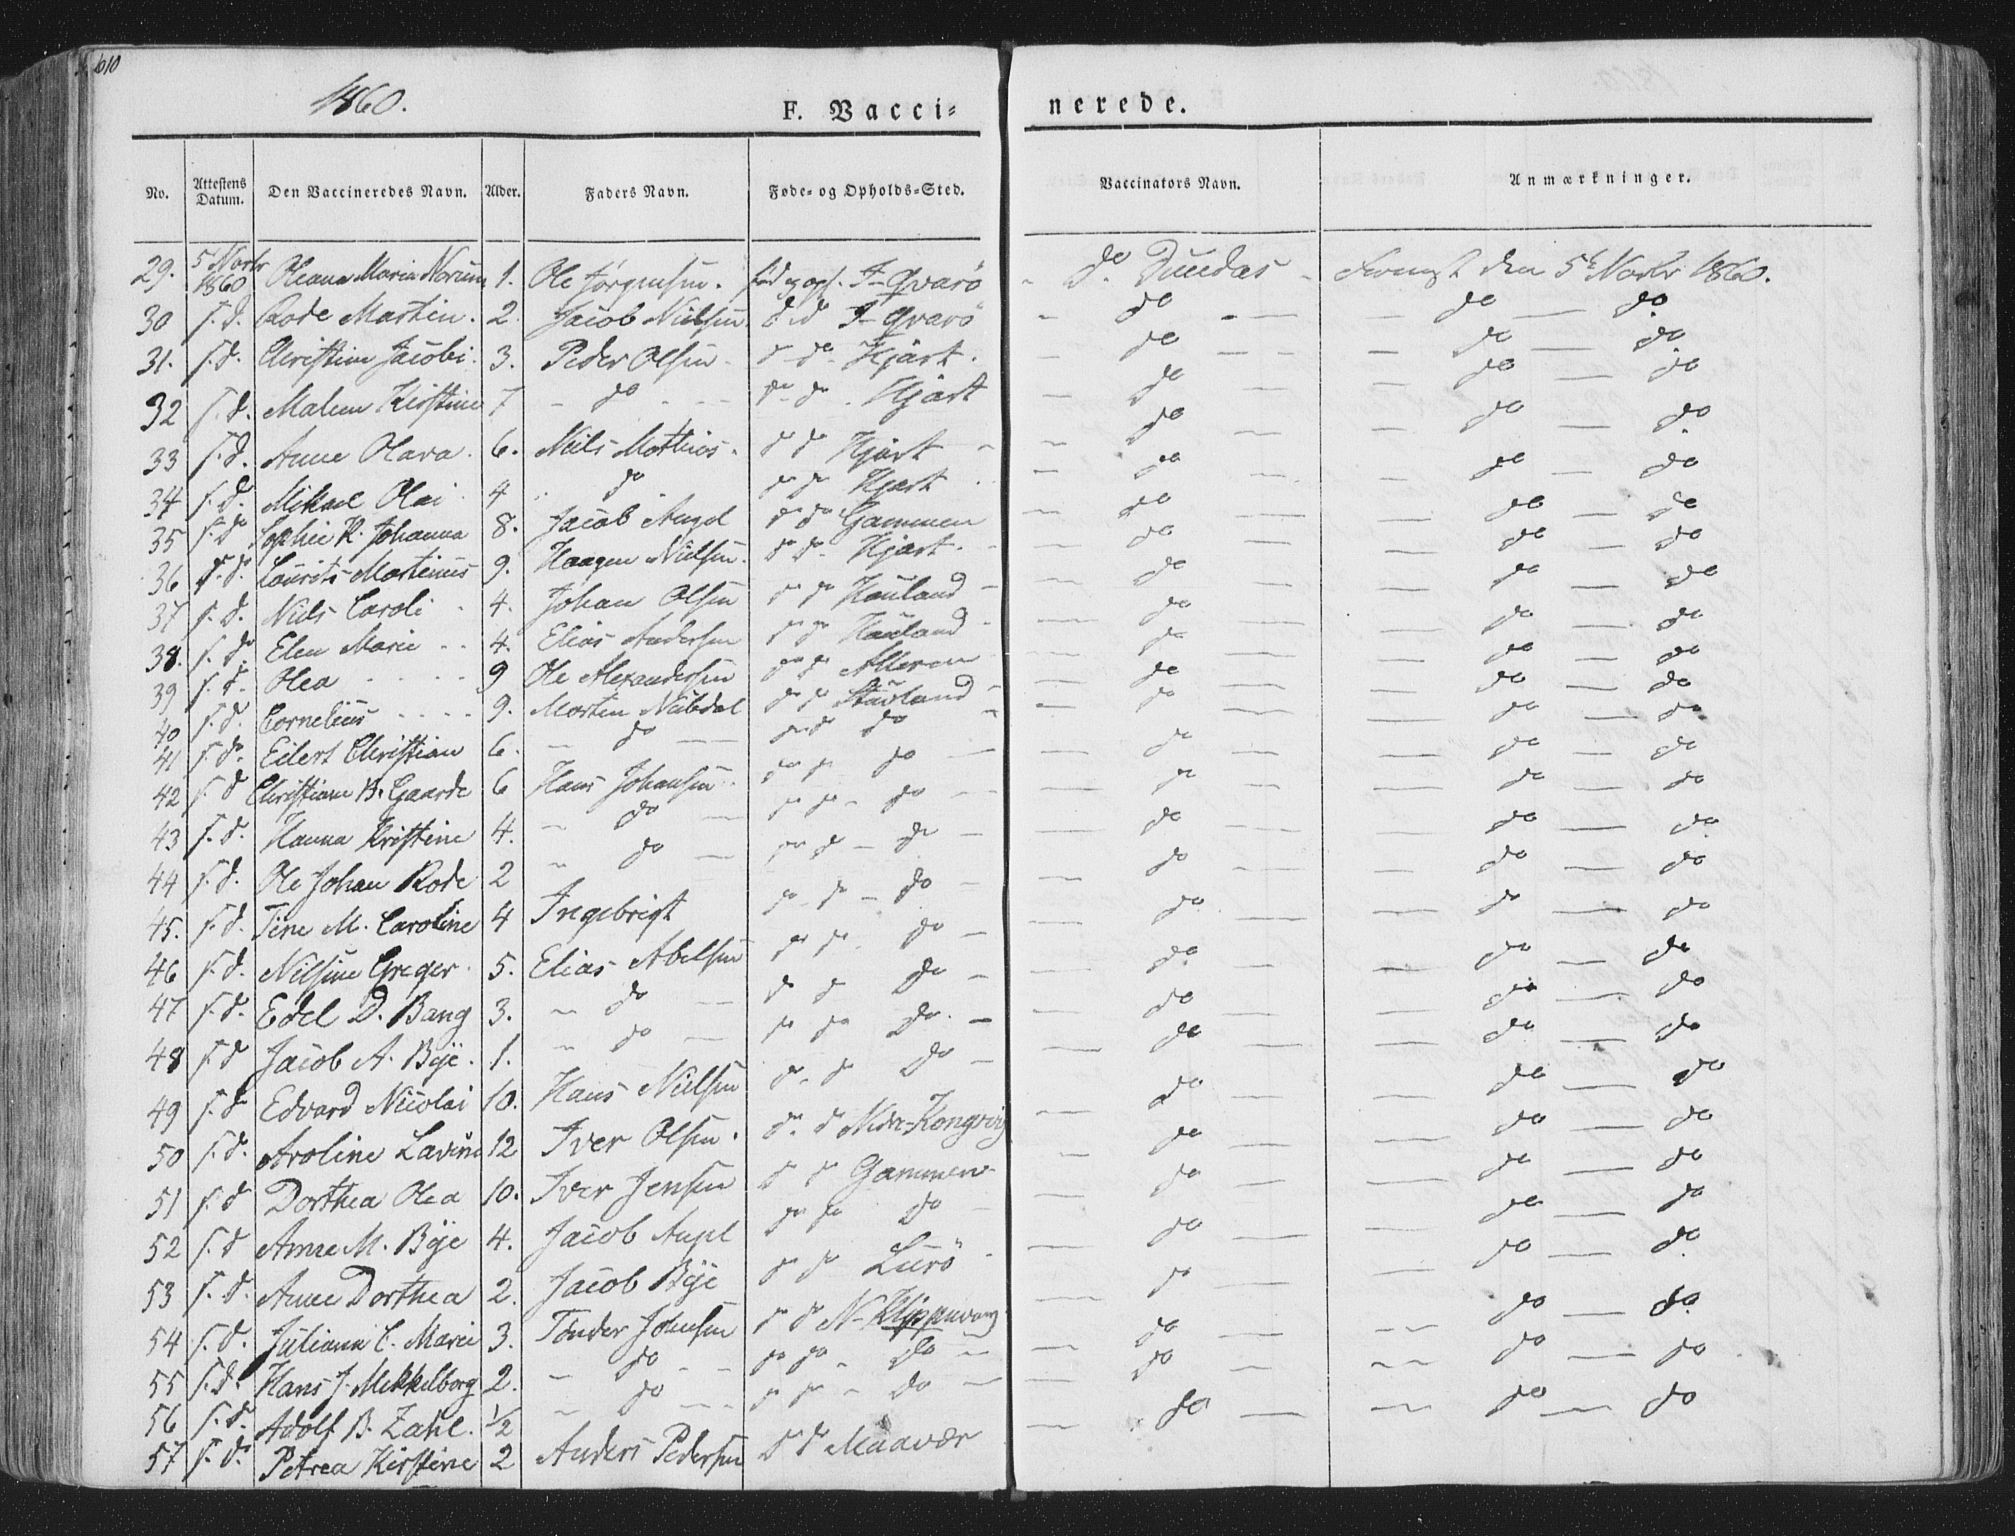 610
1860.
F. Vacci=nerede.
No. Attestens Datum. Den Vaccineredes Navn. Alder. Faders Navn. Føde- og Opholds-Sted. Vaccinators Navn. Anmærkninger.
29. 5 Novbr 1860 Oleana Maria Norum 1. Ole Jørgensen. født og opf. I-Qvarö do Duedas den 5te Novbr 1860.
30 s. d. Rode Martin. 2. Jacob Nielsen d d I-Qvarö do do do
31. s. d. Christine Jacobi. 3. Peder Olsen do do Hjart. do do do
32 s. d. Malene Kirstine 7 do do do Hjart do do do
33 s. d. Anne Olava. 6. Niels Mathias. do do Hjart do do do
34 s. d. Mikael Olai 4 do do do Hjart do do do
35 s. d. Sophie K. Johanna 8. Jacob Angel do do Gammen do do do
36 s. d. Lourits Martinus 9. Haagen Nielsen. do do Hjart. do do do
37 s. d. Niels Caroli 4. Johan Olsen do do Hauland do do do
38. s. d. Elen Marie 4. Elias Andersen do do Hauland do do do
39 s. d. Olea 9 Ole Alexandersen do do Alleren do do do
40 s. d. Cornelius 9. Morten do do do do do
41 s. d. Eilert Christian 6. do do do do do do do
42 s. d Christiane B. Gaarde 6 Hans Johansen do do do do do do
43 s. d. Hanna Kristine 4. do do do do do do do
44 s. d. Ole Johan Rode 2 do do do do do do do
45. s. d. Tine M. Caroline 4 Ingebrigt do do do do do do
46 s. d. Nilsine Greger 5. Elias Abelsen do do do do do do
47 s. d. Edel D. Bang 3. do do do do do do do
48 s. d Jacob A. Bye. 1. do do do do do do do
49 s. d Edvard Nicolai 10. Hans Nielsen do do do do do do
50 s. d. Aroline Lavine 12 Iver Olsen. do d Nedre-Kongsvig do do do
51 s. d Dorthea Olea 10. Iver Jensen do do Gammen do do do
52 s. d Anne M. Bye 4. Jacob Angel do do do do do do
53 s. d. Anne Dorthea 2. Jacob Bye do do Lurö do do do
54 s. d. Juliana C. Marie 3. Tønder Johnsen do do N-Klippenvaag do do do
55 s. d. Hans J. Mekkelborg 2. do do do do do do do
56 s. d. Adolf B. Zahl. 1/2 do do do do do do do
57 s. d. Petrea Kirstine 2 Anders Pedersen d d Maavær do do do